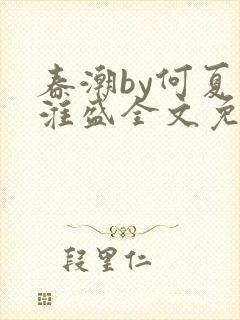 春潮by何夏
淮盛全文免
段里仁